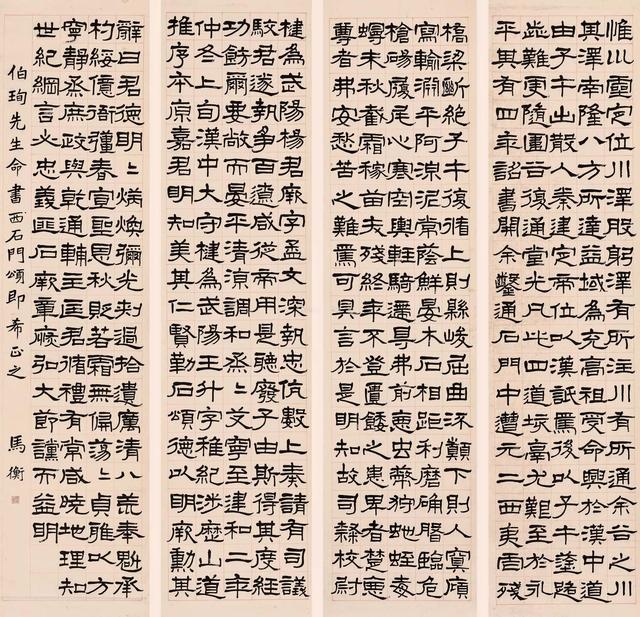 惟巛靈定位川澤股躬澤有所注川有所通余谷之川
其澤南隆八方所達益域為充高祖受命興於漢中道
由子午出散入秦建定帝位以漢詆焉後以子午塗路
歮難更隨圍谷復通堂光凡此四道垓鬲尤艱至於永
平其有四年詔書開余鑿通石門中遭元二西夷虐殘
橋梁斷絕子午復循上則縣峻屈曲流顛下則入冥廎
寫輸淵平阿涼泥常蔭鮮晏木石相距利磨确磐臨危
槍碭履尾心寒空輿輕騎遰㝵弗前惡虫蔽狩蛇蛭毒
蟃未秋截霜稼苗夭殘終年不登匱餧之患卑者楚惡
尊者弗安愁苦之難焉可具言於是明知故司隸校尉
楗為武陽楊君厥字孟文深執忠伉數上奏請有司議
駮君遂執爭百遼咸從帝用是聽廢子由斯得其度經
功飭爾要敞而晏平清涼調和烝〻艾寧至建和二年
仲冬上旬漢中大守楗為武陽王升字稚紀涉歷山道
推序本原嘉君明知美其仁賢勒石頌德以明厥勳其
辭曰君德明〻炳煥彌光刺過拾遺厲清八荒奉魁承
杓綏億衙彊春宣聖恩秋貶若霜無偏蕩〻貞雅以方
寧靜烝庶政與乾通輔主匡君循禮有常咸曉地理知
世紀綱言必忠義匪石厥章恢弘大節讜而益明
伯珣先生命書西石門頌即希正之 馬衡